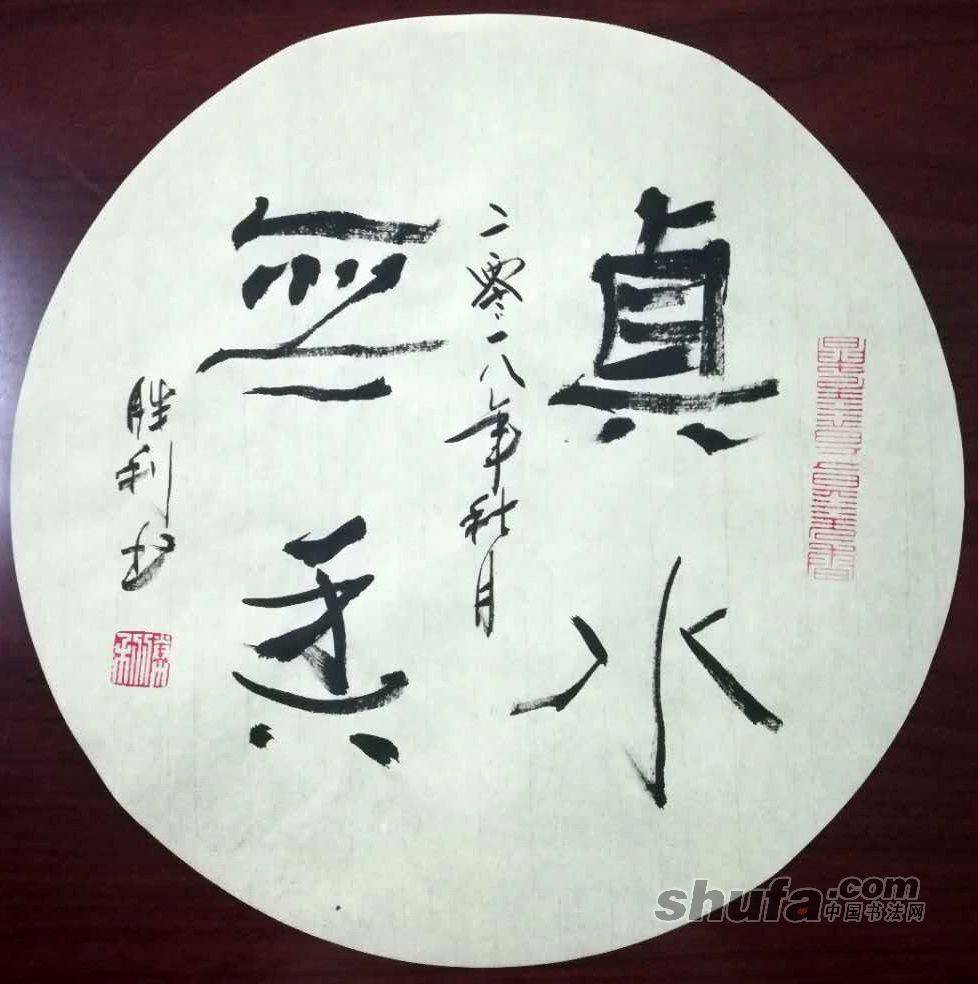 真水
二零一八年秋月
無香
胜利书
shufa.com
中国书法网